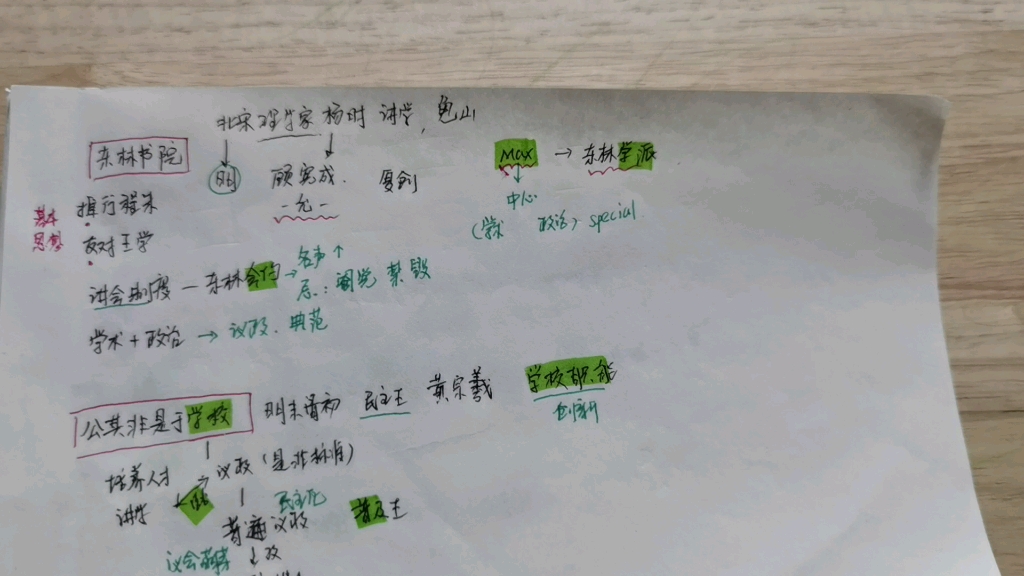 北宋理学家 杨时 讲学, 龟山
东林书院
明 顾宪成. 复创
Max → 东林学派
-允-
中心
(学术 政治) special.
基本思想
推行程朱
反对王学
讲会制度 — 东林会约 → 名声↑
后: 阉党 禁毁
学术 + 政治 → 议政. 典范
公其非是于学校 明末清初 民主王 黄宗羲 学校职能
创新
培养人才 → 议政 (是非标准)
讲学
民主化
普遍议政
议会萌芽 ↓ 改